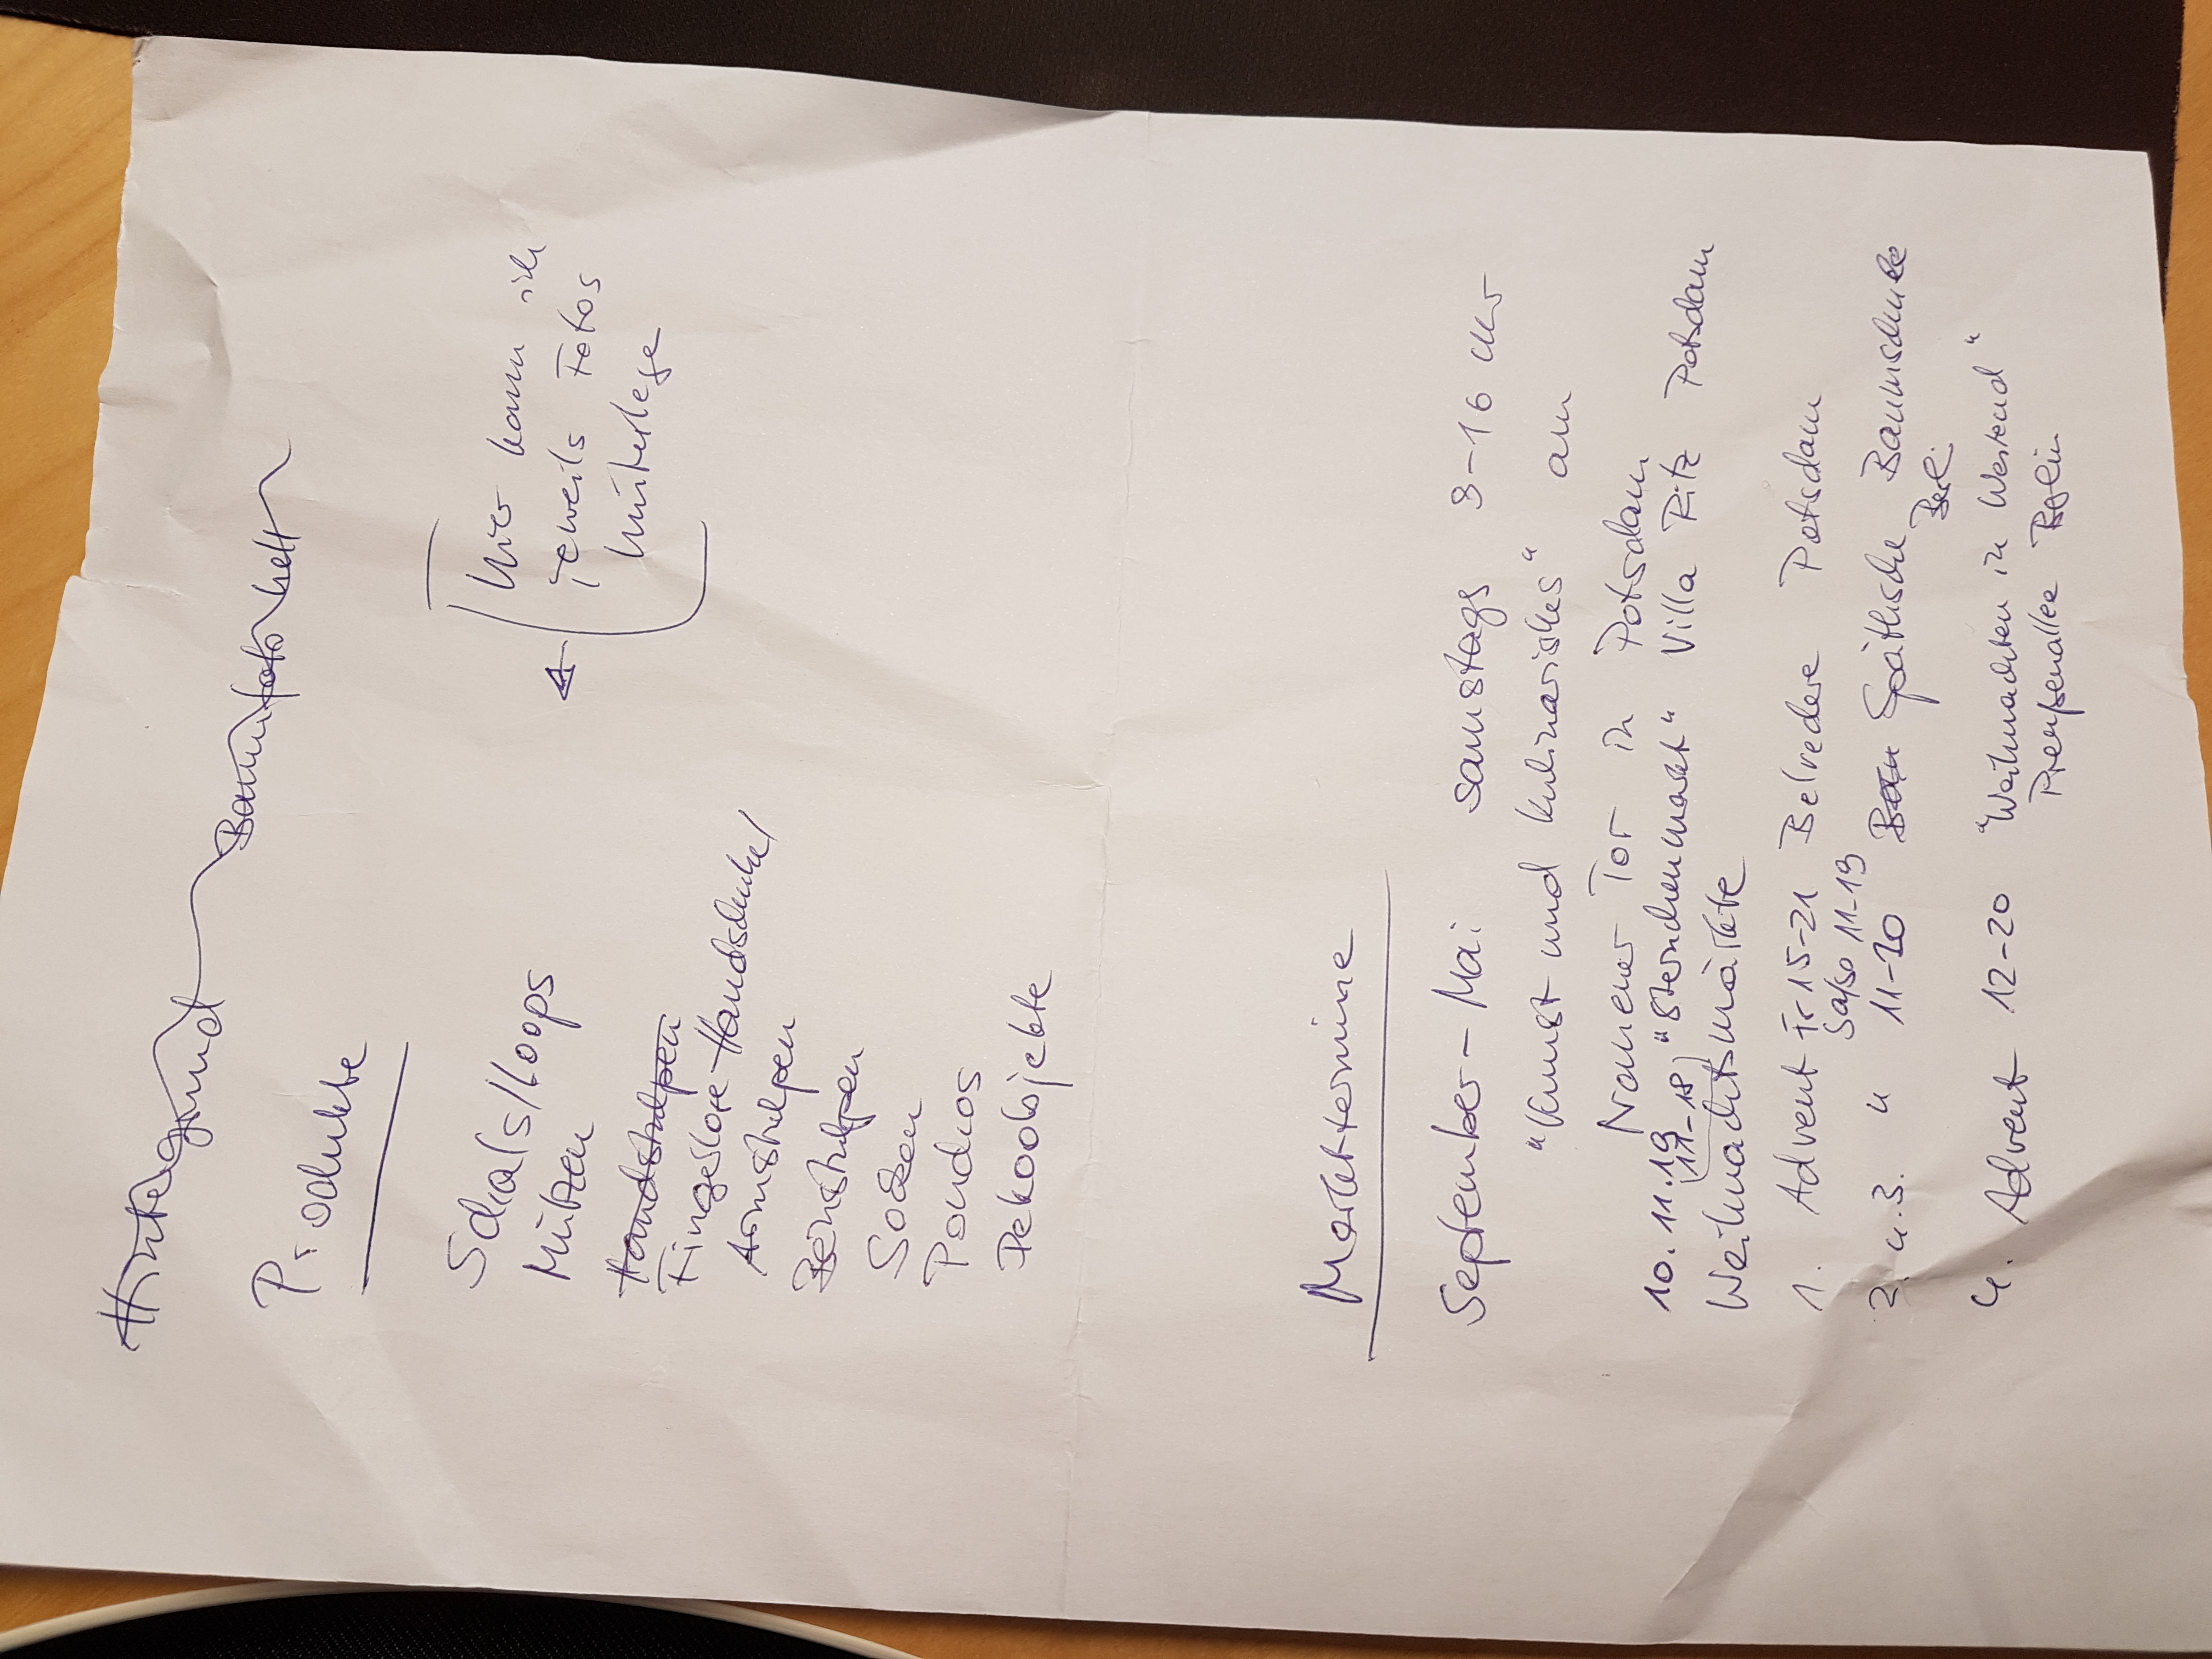 Hintergrund Baumfoto hell
Produkte
Schals/Loops
Mützen
Handstulpen
Fingerlose Handschuhe/
Armstulpen
Beinstulpen
Socken
Ponchos
Dekoobjekte
hier kann ich
jeweils Fotos
hinterlege
Markttermine
September - Mai samstags 9-16 Uhr
"Kunst und Kulinarisches" am
Nauener Tor in Potsdam
10.11.19 "Sternchenmarkt" Villa Ritz Potsdam
(11-18)
Weihnachtsmärkte
1. Advent Fr 15-21 Belvedere Potsdam
Sa/So 11-19
2. u. 3. " 11-20 Späthsche Baumschule
Berli
4. Advent 12-20 "Weihnachten in Westend"
Preußenallee Berlin